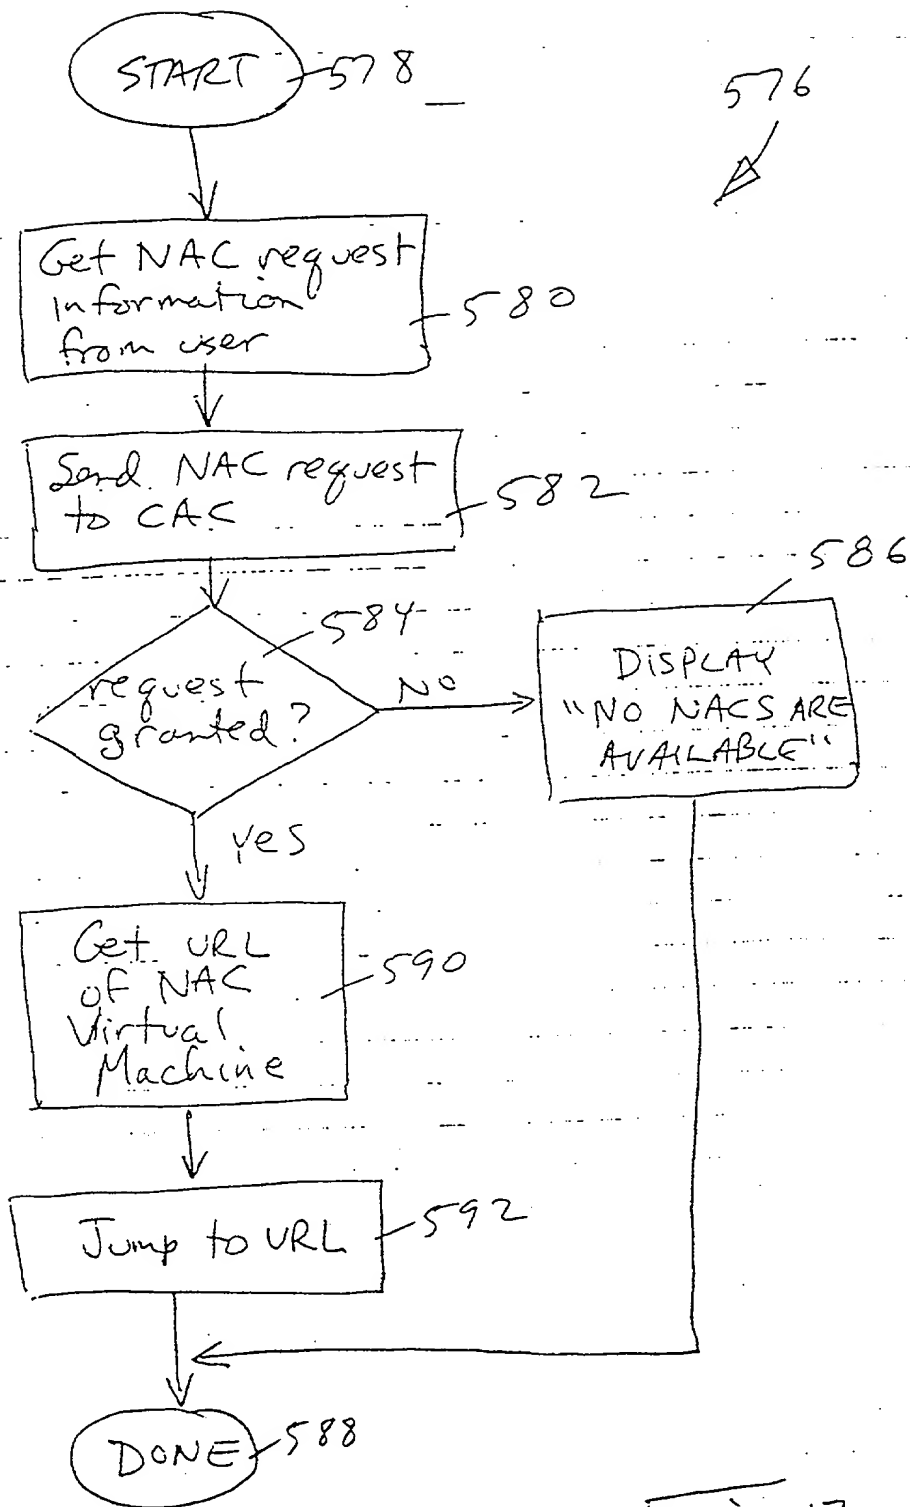 START 578
576
Get NAC request
information
from user
580
Send NAC request
to CAC
582
584
request
granted?
NO
586
DISPLAY
"NO NACS ARE
AVAILABLE"
yes
Get URL
of NAC
Virtual
Machine
590
Jump to URL
592
DONE 588